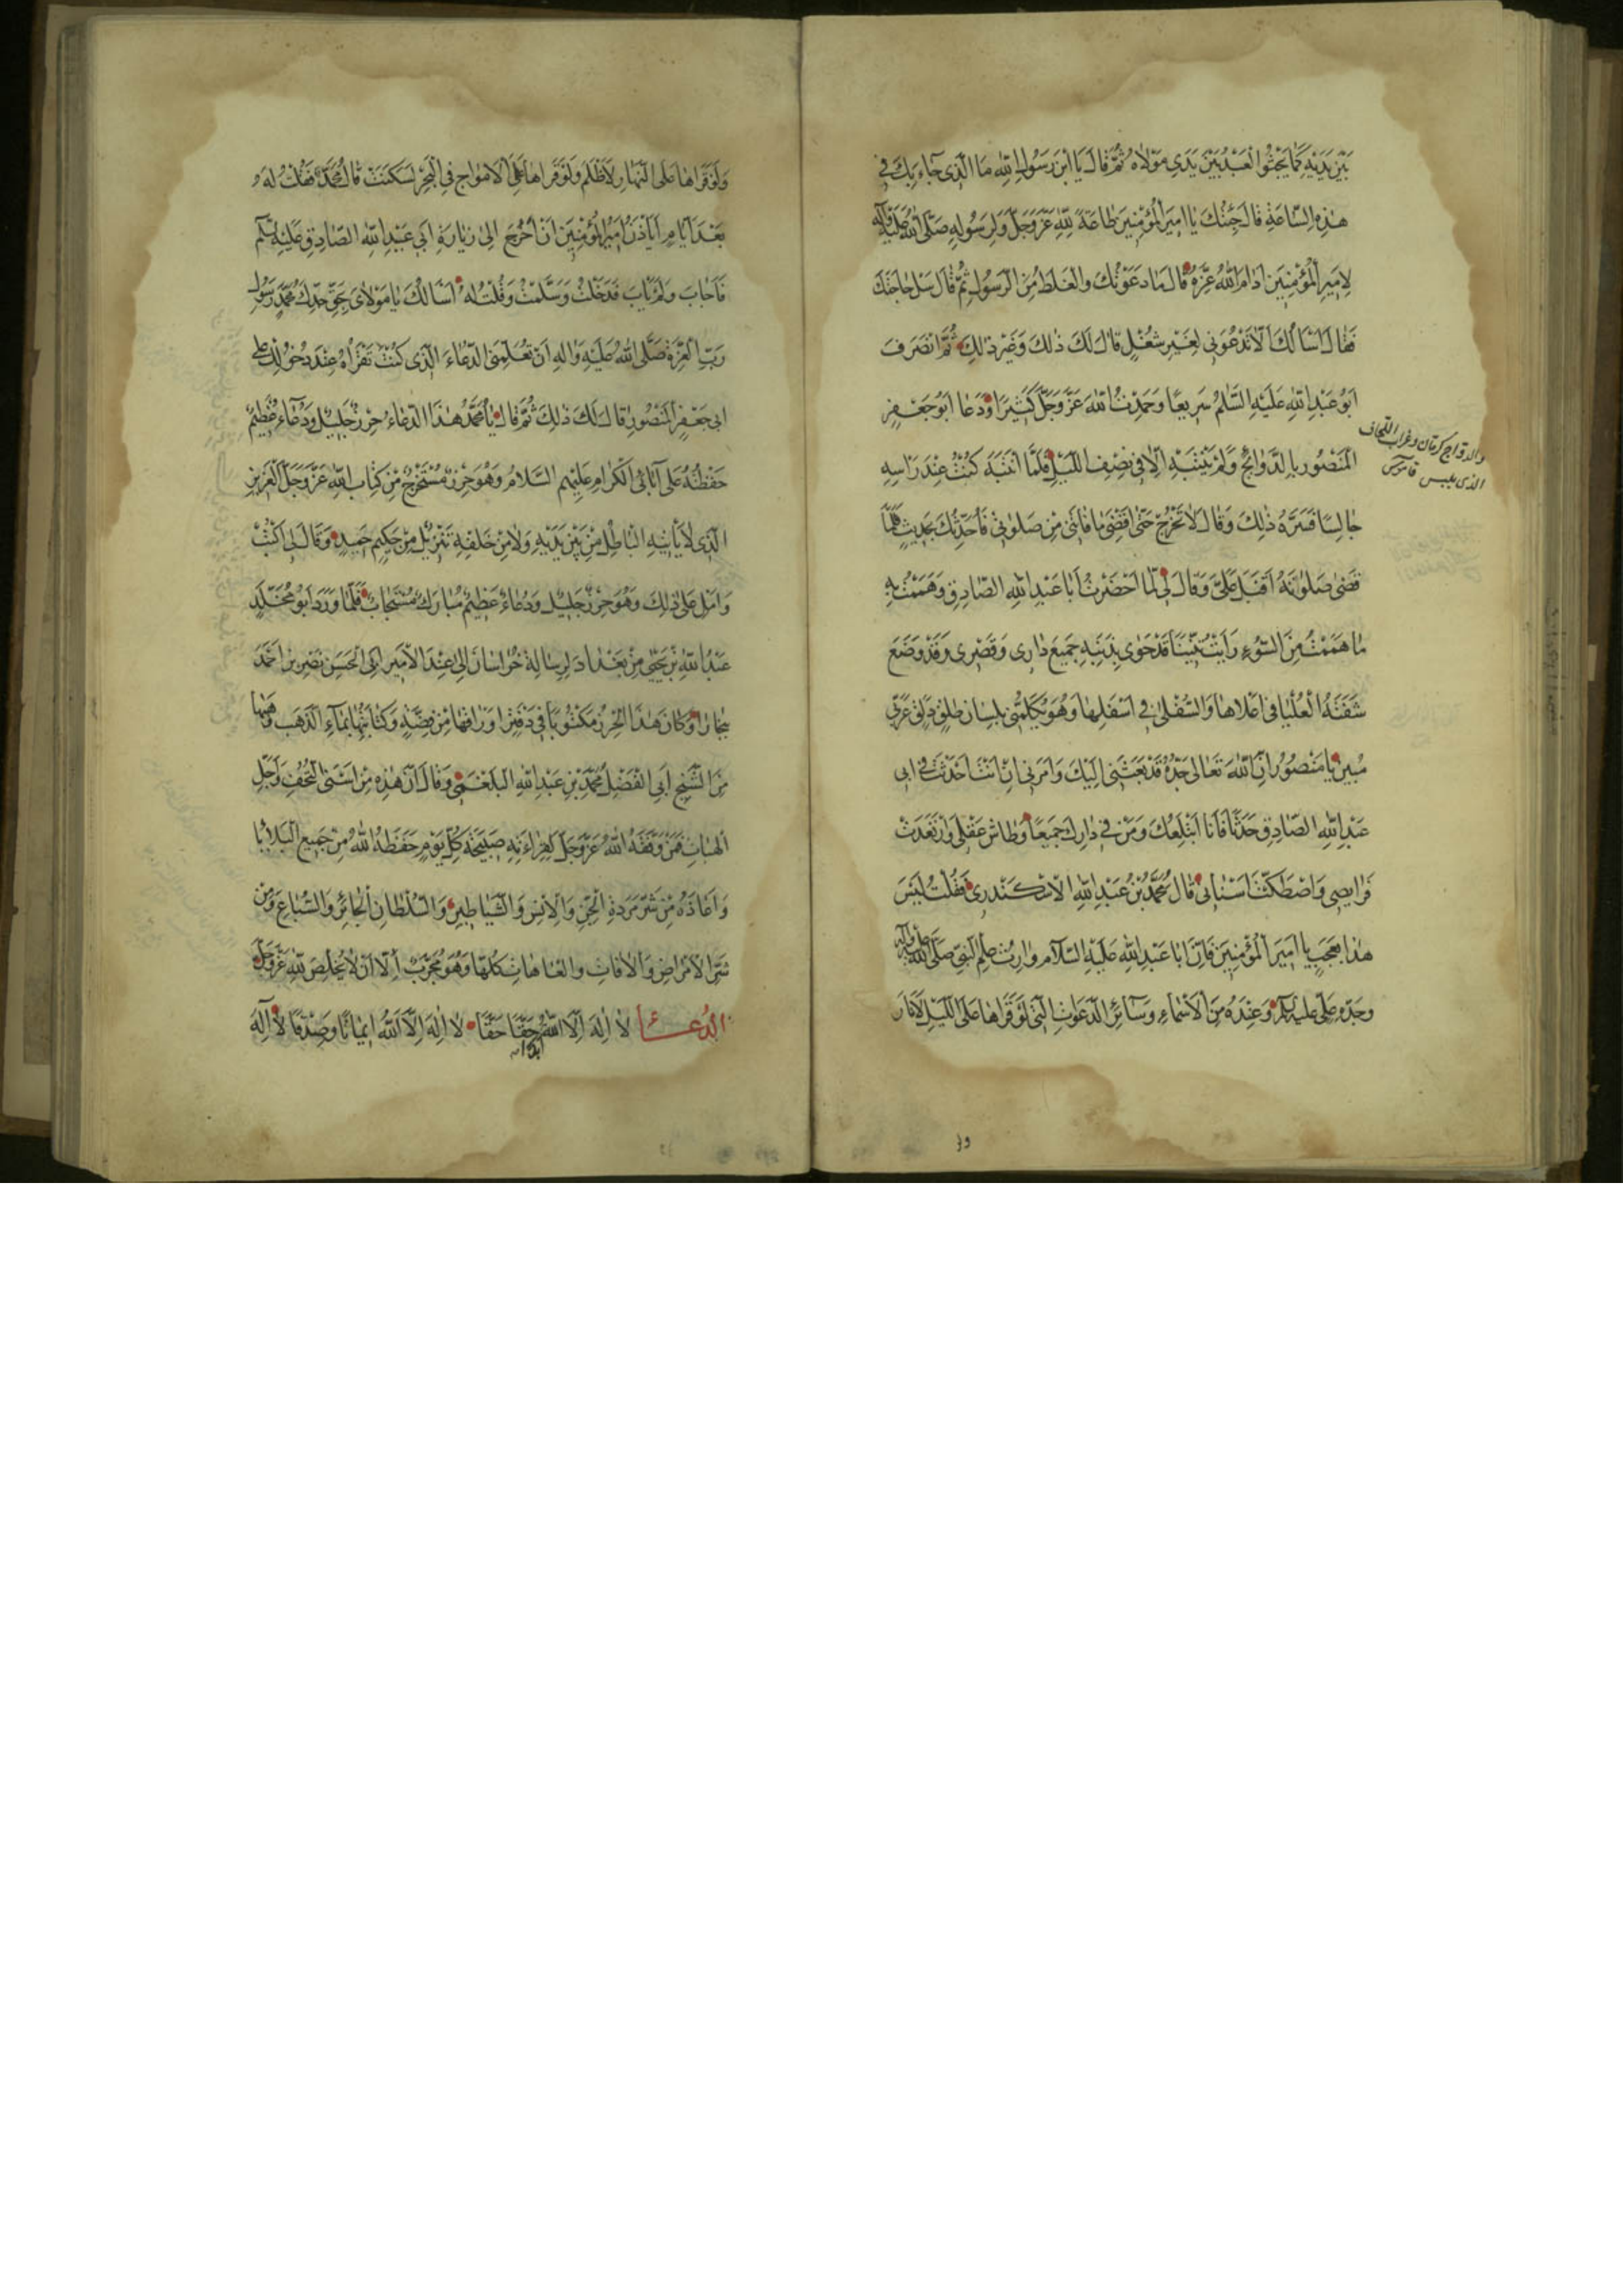 بَيْنَ يَدَيْهِ كَمَا يَجْثُوا الْعَبْدُ بَيْنَ يَدَى مَوْلاهُ ثُمَّ قَالَ يَا ابْنَ رَسُولِ اللهِ مَا الَّذى جَاءَ بِكَ فى
هٰذِهِ السَّاعَةِ قَالَ جِئْتُكَ يَا اَميرَ الْمُؤْمِنينَ طَاعَةً لِلّٰهِ عَزَّ وَجَلَّ وَلِرَسُولِهِ صَلَّى اللهُ عَلَيْهِ وَآلِهِ
لِاَميرِ الْمُؤْمِنينَ اَدامَ اللهُ عِزَّهُ قَالَ مَا دَعَوْتُكَ وَالْغَلَطُ مِنَ الرَّسُولِ ثُمَّ قَالَ سَلْ حَاجَتَكَ
فَقَالَ اَسْأَلُكَ اَلَّا تَدْعُوَنى لِغَيْرِ شُغْلٍ قَالَ لَكَ ذٰلِكَ وَغَيْرُ ذٰلِكَ ثُمَّ انْصَرَفَ
اَبُو عَبْدِ اللهِ عَلَيْهِ السَّلٰمُ سَريعًا وَحَمِدْتُ اللهَ عَزَّ وَجَلَّ كَثيرًا وَدَعَا اَبُو جَعْفَرٍ
الْمَنْصُورُ بِالدَّوَاويجِ وَلَمْ يَنْتَبِهْ اِلَّا فى نِصْفِ اللَّيْلِ فَلَمَّا انْتَبَهَ كُنْتُ عِنْدَ رَاْسِهِ
والدواج كرمان وغراب اللحاف
الذى يلبس قاموس
جَالِسًا فَسَرَّهُ ذٰلِكَ وَقَالَ لَا تَخْرُجْ حَتّٰى اَقْضِىَ مَا فَاتَنى مِنْ صَلٰوتى فَاُحَدِّثَكَ بِحَديثٍ فَلَمَّا
قَضٰى صَلٰوتَهُ اَقْبَلَ عَلَىَّ وَقَالَ لى لَمَّا اَحْضَرْتُ اَبَا عَبْدِ اللهِ الصَّادِقَ وَهَمَمْتُ بِهِ
مَا هَمَمْتُ مِنَ السُّوءِ رَاَيْتُ تِنّينًا قَدْ حَوٰى بِذَنَبِهِ جَميعَ دَارى وَقَصْرى وَقَدْ وَضَعَ
شَفَتَهُ الْعُلْيَا فى اَعْلَاهَا وَالسُّفْلٰى فى اَسْفَلِهَا وَهُوَ يُكَلِّمُنى بِلِسَانٍ طَلِقٍ ذَلِقٍ عَرَبِىٍّ
مُبينٍ يَا مَنْصُورُ اِنَّ اللهَ تَعَالٰى جَدُّهُ قَدْ بَعَثَنى اِلَيْكَ وَاَمَرَنى اِنْ اَنْتَ اَحْدَثْتَ فى اَبى
عَبْدِ اللهِ الصَّادِقِ حَدَثًا فَاَنَا اَبْتَلِعُكَ وَمَنْ فى دَارِكَ جَميعًا وَطَاشَ عَقْلى وَارْتَعَدَتْ
فَرَايِصى وَاصْطَكَّتْ اَسْنَانى قَالَ مُحَمَّدُ بْنُ عَبْدِ اللهِ الْاِسْكَنْدَرِىُّ فَقُلْتُ لَيْسَ
هٰذَا بِعَجَبٍ يَا اَميرَ الْمُؤْمِنينَ فَاِنَّ اَبَا عَبْدِ اللهِ عَلَيْهِ السَّلَامُ وَارِثُ عِلْمِ النَّبِىِّ صَلَّى اللهُ عَلَيْهِ وَآلِهِ
وَجَدِّهِ عَلِىٍّ عليه السلم وَعِنْدَهُ مِنَ الْاَسْمَاءِ وَسَائِرِ الدَّعَوَاتِ الَّتى لَوْ قَرَاَهَا عَلَى اللَّيْلِ لَاَنَارَ
وَلَوْ قَرَاَهَا عَلَى النَّهَارِ لَاَظْلَمَ وَلَوْ قَرَاَهَا عَلَى الْاَمْوَاجِ فِى الْبَحْرِ لَسَكَنَتْ قَالَ مُحَمَّدٌ فَقُلْتُ لَهُ
بَعْدَ اَيَّامٍ اَيَاْذَنُ اَميرُ الْمُؤْمِنينَ اَنْ اَخْرُجَ اِلٰى زِيَارَةِ اَبى عَبْدِ اللهِ الصَّادِقِ عَلَيْهِ السلم
فَاَجَابَ وَلَمْ يَاْبَ فَدَخَلْتُ وَسَلَّمْتُ وَقُلْتُ لَهُ اَسْاَلُكَ يَا مَوْلَاىَ بِحَقِّ جَدِّكَ مُحَمَّدٍ رَسُولِ
رَبِّ الْعِزَّةِ صَلَّى اللهُ عَلَيْهِ وَاٰلِهِ اَنْ تُعَلِّمَنِى الدُّعَاءَ الَّذى كُنْتَ تَقْرَاُهُ عِنْدَ دُخُولِكَ عَلٰى
اَبى جَعْفَرٍ الْمَنْصُورِ قَالَ لَكَ ذٰلِكَ ثُمَّ قَالَ يَا مُحَمَّدُ هٰذَا الدُّعَاءُ حِرْزٌ جَليلٌ وَدُعَاءٌ عَظيمٌ
حَفِظْتُهُ عَلٰى آبَائِىَ الْكِرَامِ عَلَيْهِمُ السَّلَامُ وَهُوَ حِرْزٌ مُسْتَخْرَجٌ مِنْ كِتَابِ اللهِ عَزَّ وَجَلَّ الْعَزيزِ
الَّذى لَا يَاْتيهِ الْبَاطِلُ مِنْ بَيْنِ يَدَيْهِ وَلَا مِنْ خَلْفِهِ تَنْزيلٌ مِنْ حَكيمٍ حَميدٍ وَقَالَ لى اكْتُبْ
وَاَمْلٰى عَلَىَّ ذٰلِكَ وَهُوَ حِرْزٌ جَليلٌ وَدُعَاءٌ عَظيمٌ مُبَارَكٌ مُسْتَجَابٌ فَلَمَّا وَرَدَ اَبُو مُخَلَّدٍ
عَبْدُ اللهِ بْنُ يَحْيٰى مِنْ بَغْدَادَ لِرِسَالَةِ خُرَاسَانَ اِلٰى عِنْدِ الْاَميرِ اَبِى الْحَسَنِ نَصْرِ بْنِ اَحْمَدَ
بِبُخَارَا وَكَانَ هٰذَا الْحِرْزُ مَكْتُوبًا فى دَفْتَرٍ اَوْرَاقُهَا مِنْ فِضَّةٍ وَكِتَابَتُهَا بِمَاءِ الذَّهَبِ وَهَبَهَا
مِنَ الشَّيْخِ اَبِى الْفَضْلِ مُحَمَّدِ بْنِ عَبْدِ اللهِ الْبَلْعَمِىِّ وَقَالَ اِنَّ هٰذِهِ مِنْ اَسْنَى التُّحَفِ وَاَجَلِّ
الْهِبَاتِ فَمَنْ وَفَّقَهُ اللهُ عَزَّ وَجَلَّ لِقِرَاءَتِهِ صَبيحَةَ كُلِّ يَوْمٍ حَفِظَهُ اللهُ مِنْ جَميعِ الْبَلَايَا
وَاَعَاذَهُ مِنْ شَرِّ مَرَدَةِ الْجِنِّ وَالْاِنْسِ وَالشَّيَاطينِ وَالسُّلْطَانِ الْجَائِرِ وَالسِّبَاعِ وَمِنْ
شَرِّ الْاَمْرَاضِ وَالْاٰفَاتِ وَالْعَاهَاتِ كُلِّهَا وَهُوَ مُجَرَّبٌ اِلَّا اَنْ لَا يُخْلِصَ لِلّٰهِ عَزَّ وَجَلَّ
الدُّعاء لَا اِلٰهَ اِلَّا اللهُ حَقًّا حَقًّا لَا اِلٰهَ اِلَّا اللهُ ايمَانًا وَصِدْقًا لَا اِلٰهَ